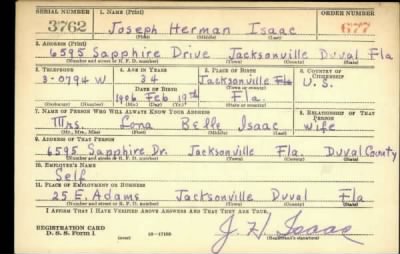 SERIAL NUMBER 1. NAME (Print) ORDER NUMBER
3762 Joseph Herman Isaac 677
(First) (Middle) (Last)
2. ADDRESS (Print)
6595 Sapphire Drive Jacksonville Duval Fla
(Number and street or R. F. D. number) (Town) (County) (State)
3. TELEPHONE 4. AGE IN YEARS 5. PLACE OF BIRTH 6. COUNTRY OF CITIZENSHIP
3-0794 W 34 Jacksonville Fla U.S.
DATE OF BIRTH (Town or county)
1906 Feb 19th Fla.
(Mo.) (Day) (Yr.) (State or country)
7. NAME OF PERSON WHO WILL ALWAYS KNOW YOUR ADDRESS 8. RELATIONSHIP OF THAT PERSON
Mrs. Lona Belle Isaac Wife
(Mr., Mrs., Miss) (First) (Middle) (Last)
9. ADDRESS OF THAT PERSON
6595 Sapphire Dr. Jacksonville Fla. Duval County
(Number and street or R. F. D. number) (Town) (County) (State)
10. EMPLOYER'S NAME
Self
11. PLACE OF EMPLOYMENT OR BUSINESS
25 E. Adams Jacksonville Duval Fla
(Number and street or R. F. D. number) (Town) (County) (State)
I AFFIRM THAT I HAVE VERIFIED ABOVE ANSWERS AND THAT THEY ARE TRUE.
REGISTRATION CARD J. H. Isaac
D. S. S. Form 1 (over) (Registrant's signature)